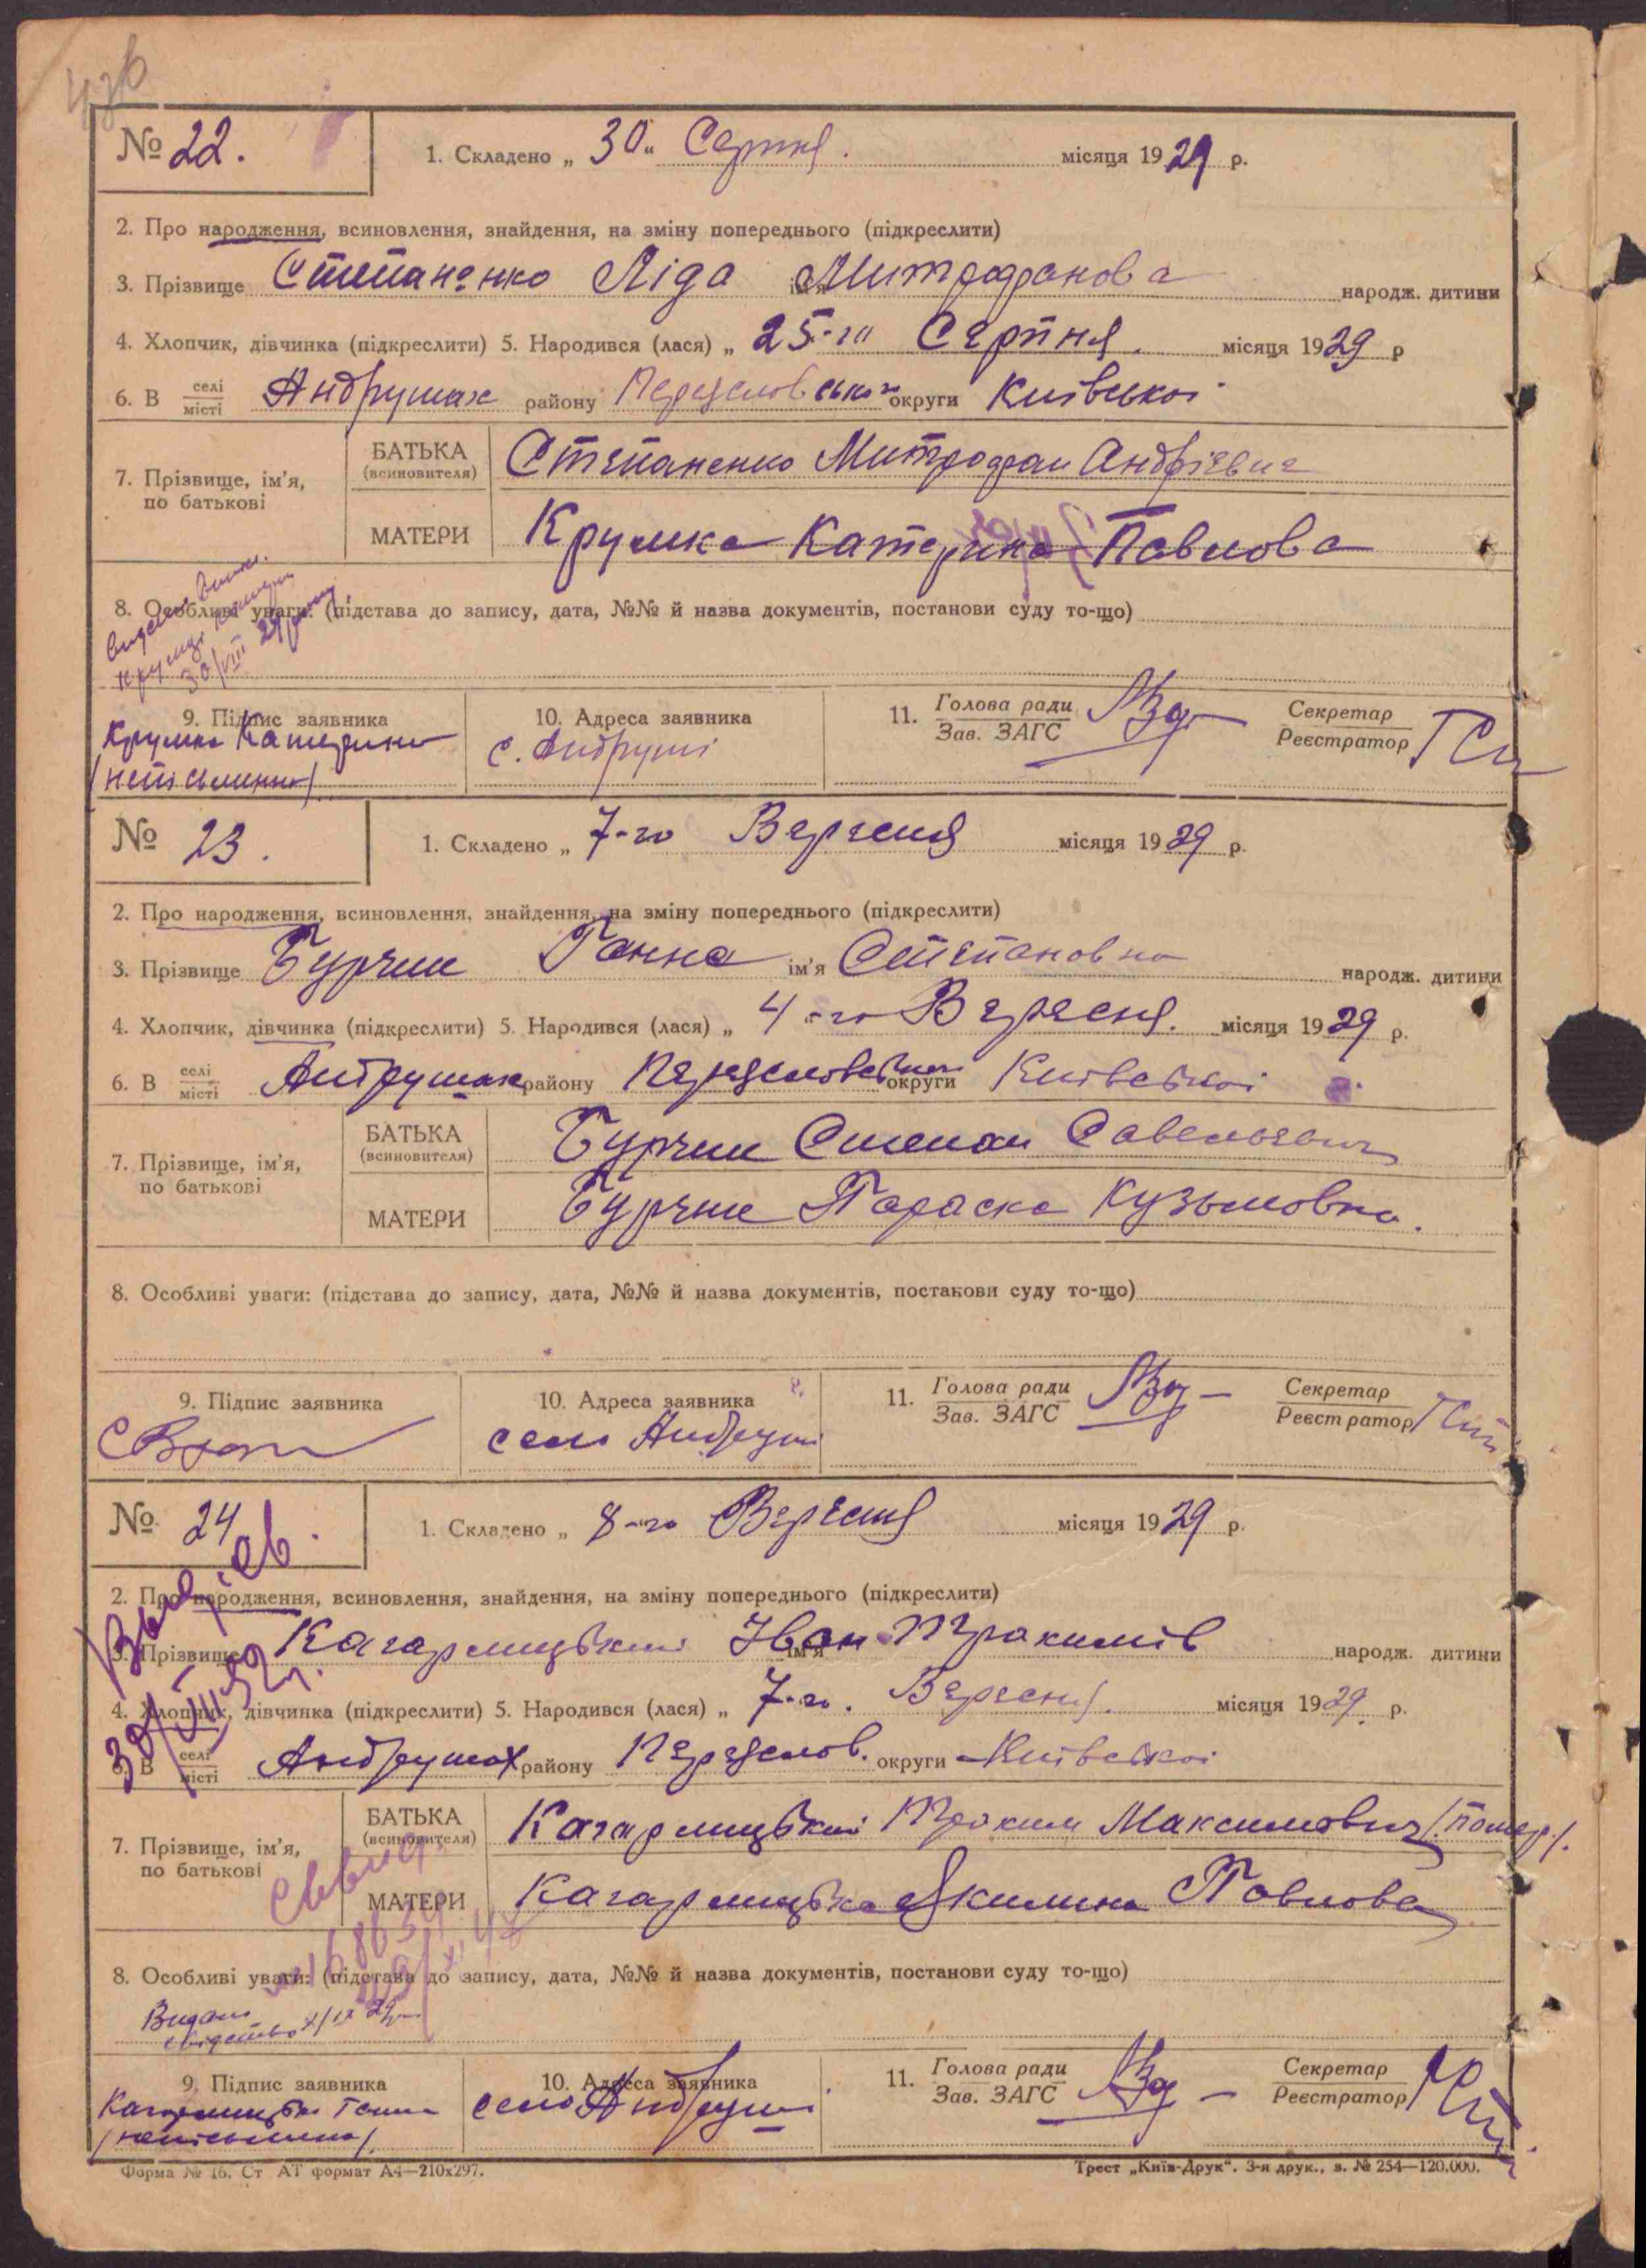 № 22. 1. Складено „ 30 “ Серпня. місяця 1929 р.
2. Про народження, всиновлення, знайдення, на зміну попереднього (підкреслити)
3. Прізвище Степаненко Ліда ім'я Митрофанова народж. дитини
4. Хлопчик, дівчинка (підкреслити) 5. Народився (лася) „ 25-го Серпня. місяця 1929 р
6. В селі/місті Андрушах району Переяславської округи Київської
7. Прізвище, ім'я, по батькові
БАТЬКА (всиновителя) Степаненко Митрофан Андрієвич
МАТЕРИ Крумка Катерина Павлова
8. Особливі уваги: (підстава до запису, дата, №№ й назва документів, постанови суду то-що)
30/VIII 29
9. Підпис заявника 10. Адреса заявника 11. Голова ради/Зав. ЗАГС Секретар/Реєстратор
Крумка Катерина с. Андруші
(неписьменна)
№ 23. 1. Складено „ 7-го Вересня місяця 1929 р.
2. Про народження, всиновлення, знайдення, на зміну попереднього (підкреслити)
3. Прізвище Бурчик Ганна ім'я Степановна народж. дитини
4. Хлопчик, дівчинка (підкреслити) 5. Народився (лася) „ 4-го Вересня. місяця 1929 р.
6. В селі/місті Андрушах району Переяславської округи Київської
7. Прізвище, ім'я, по батькові
БАТЬКА (всиновителя) Бурчик Степан Савельевич
МАТЕРИ Бурчик Параска Кузьмовна.
8. Особливі уваги: (підстава до запису, дата, №№ й назва документів, постанови суду то-що)
9. Підпис заявника 10. Адреса заявника 11. Голова ради/Зав. ЗАГС Секретар/Реєстратор
село Андруші
№ 24. 1. Складено „ 8-го Вересня місяця 1929 р.
2. Про народження, всиновлення, знайдення, на зміну попереднього (підкреслити)
3. Прізвище Кагарлицький Іван ім'я Трохимів народж. дитини
4. Хлопчик, дівчинка (підкреслити) 5. Народився (лася) „ 7-го. Вересня. місяця 1929. р.
6. В селі/місті Андрушах району Переяслов. округи Київської
7. Прізвище, ім'я, по батькові
БАТЬКА (всиновителя) Кагарлицький Трохим Максимович /помер/.
МАТЕРИ Кагарлицька Якилина Павлова
8. Особливі уваги: (підстава до запису, дата, №№ й назва документів, постанови суду то-що)
Видано
свідоцтво
9. Підпис заявника 10. Адреса заявника 11. Голова ради/Зав. ЗАГС Секретар/Реєстратор
Кагарлицька Ганна село Андруші
/неписьменна/
Форма № 16. Ст АТ формат А4—210х297. Трест „Київ-Друк“. 3-я друк., з. № 254—120.000.